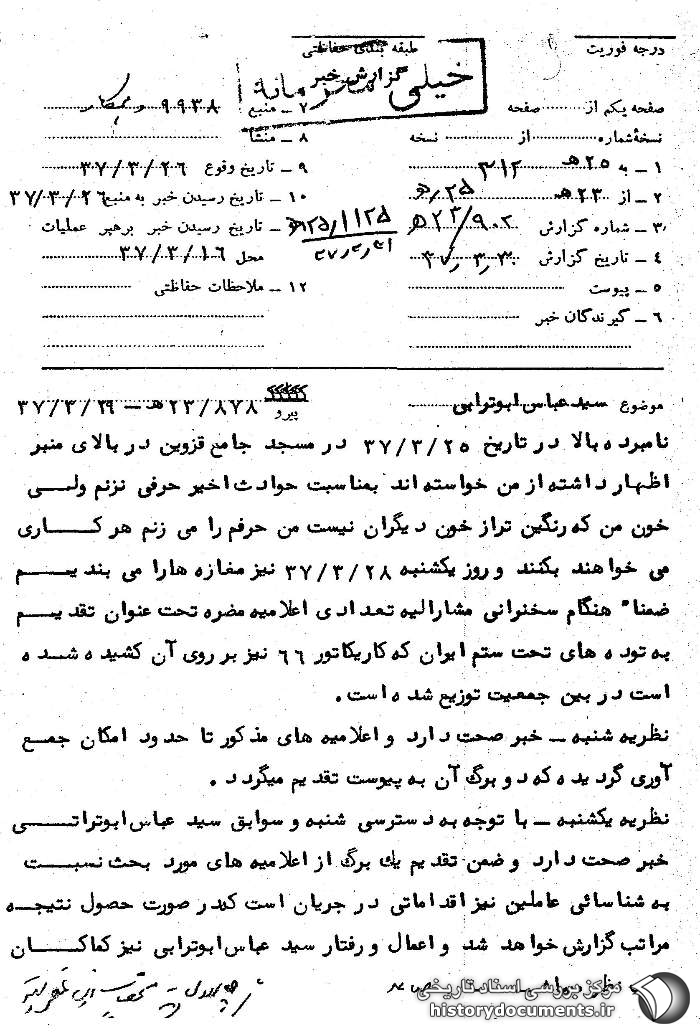 درجه فوریت
طبقه بندی حفاظتی
خیلی محرمانه
گزارش خبر
صفحه یکم از صفحه
نسخهٔ شماره از نسخه
۱ ـ به ۲۵ هـ ۳۱۲
۲ ـ از ۲۳ هـ
۳ ـ شماره گزارش ۲۳/۹۰۲ هـ
۴ ـ تاریخ گزارش
۵ ـ پیوست
۶ ـ گیرندگان خبر
۷ ـ منبع ۹۹۳۸
۸ ـ منشأ
۹ ـ تاریخ وقوع ۳۷/۳/۲۶
۱۰ ـ تاریخ رسیدن خبر به منبع ۳۷/۳/۲۶
۱۱ ـ تاریخ رسیدن خبر برهبر عملیات
محل ۳۷/۳/۱۶
۱۲ ـ ملاحظات حفاظتی
موضوع سید عباس ابوترابی
پیرو ۲۳/۸۷۸ هـ ـ ۳۷/۳/۲۹
نامبرده بالا در تاریخ ۳۷/۳/۲۵ در مسجد جامع قزوین در بالای منبر
اظهار داشته از من خواسته اند بمناسبت حوادث اخیر حرفی نزنم ولی
خون من که رنگین تراز خون دیگران نیست من حرفم را می زنم هر کاری
می خواهند بکنند و روز یکشنبه ۳۷/۳/۲۸ نیز مغازه هارا می بندیم
ضمنا" هنگام سخنرانی مشارالیه تعدادی اعلامیه مضره تحت عنوان تقدیم
به توده های تحت ستم ایران که کاریکاتور ۶۶ نیز بر روی آن کشیده شده
است در بین جمعیت توزیع شده است.
نظریه شنبه ـ خبر صحت دارد و اعلامیه های مذکور تا حدود امکان جمع
آوری گردیده که دو برگ آن به پیوست تقدیم میگردد.
نظریه یکشنبه ـ با توجه به دسترسی شنبه و سوابق سید عباس ابوتراتی
خبر صحت دارد و ضمن تقدیم یک برگ از اعلامیه های مورد بحث نسبت
به شناسائی عاملین نیز اقداماتی در جریان است که در صورت حصول نتیجه
مراتب گزارش خواهد شد و اعمال و رفتار سید عباس ابوترابی نیز کماکان
مرکز بررسی اسناد تاریخی
historydocuments.ir